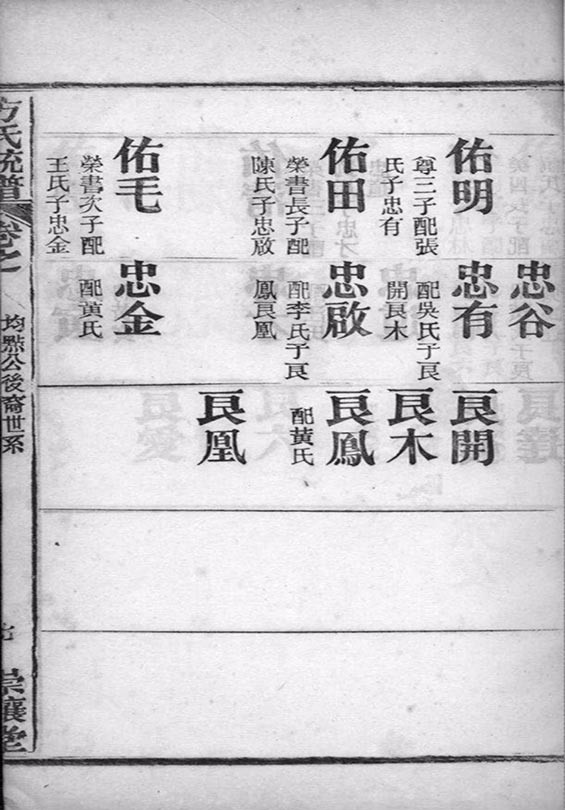 佑明
尊三子配張
氏子忠有
佑田
榮書長子配
陳氏子忠啟
佑毛
榮書次子配
王氏子忠金
忠谷
忠有
配吳氏子良
開良木
忠啟
配李氏子良
鳳良凰
忠金
配黃氏
良開
良木
良鳳
配黃氏
良凰
方氏統譜
卷之
均點公後裔世系
崇讓堂